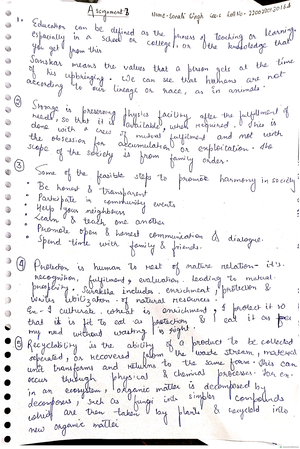 Assignment 3
Name - Sonali Singh
1. Education can be defined as the process of teaching or learning,
especially in a school or college, or the knowledge that
you get from this
Sanskar means the values that a person gets at the time
of his upbringing. We can see that humans are not
according to our lineage or race, as in animals.
② Storage is preserving physics facility after the fulfillment of
needs, so that it is available when required. This is
done with a view of mutual fulfilment and not with
the obsession for accumulation or exploitation. The
scope of the society is from family order.
③ Some of the feasible steps to promote harmony in society
• Be honest & transparent
• Participate in community events
• Help your neighbours
• Learn & teach one another
• Promote open & honest communication & dialogue.
• Spend time with family & friends.
④ Protection is human to rest of nature relation - it's
recognition, fulfilment, evaluation leading to mutual
prosperity. Suraksha includes enrichment, protection &
utilization of natural resources.
Ex- I cultivate wheat is enrichment, I protect it so
that it is fit to eat as protection & I eat it as per
my need without wasting is right.
⑤ Recyclability is the ability of a product to be collected
seperated, or recovered from the waste stream, material
unit transforms and returns to the same form. This can
occur through physical & chemical processes. For ex-
in an ecosystem, organic matter is decomposed by
decomposers, such as fungi into simpler compounds
which are then taken by plants & recycled into
new organic matter